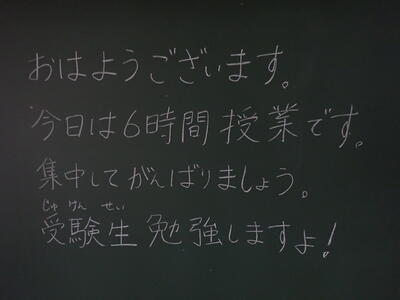 おはようございます。
今日は6時間授業です。
集中してがんばりましょう。
じゅけんせい
受験生勉強しますよ!